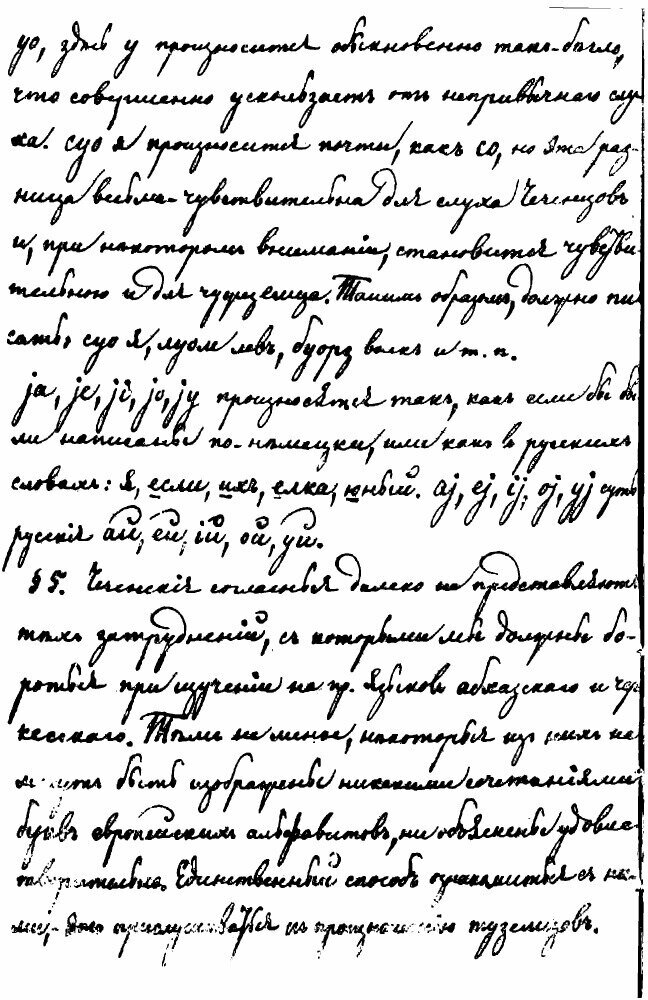 уо, здѣсь у произносится обыкновенно такъ-бѣгло,
что совершенно ускользаетъ отъ непривычнаго слу-
ха. суо я произносится почти, какъ со, но эта раз-
ница весьма-чувствительна для слуха Чеченцовъ
и, при некоторомъ вниманіи, становится чувстви-
тельною и для чуждземца. Такимъ образомъ, должно пи-
сать: суо я, луом левъ, буорз волкъ и т. п.
ja, je, ji, jo, jy произносятся такъ, какъ если бы бы-
ли написаны по-нѣмецки, или какъ въ русскихъ
словахъ: я, если, ихъ, елка, юный. aj, ej, ij, oj, yj суть
русскія ай, ей, ій, ой, уй.
§ 5. Чеченскія согласныя далеко не представляютъ
тѣхъ затрудненій, съ которыми мы должны бо-
роться при изученіи на пр. языковъ абхазскаго и чер-
кесскаго. Тѣмъ не менѣе, некоторыя изъ нихъ не
могутъ быть изображены никакими сочетаніями
буквъ европейскихъ альфавитовъ, ни объяснены удовле-
творительно. Единственный способъ ознакомиться съ ни-
ми,- это прислушиваться къ произношенію туземцовъ.